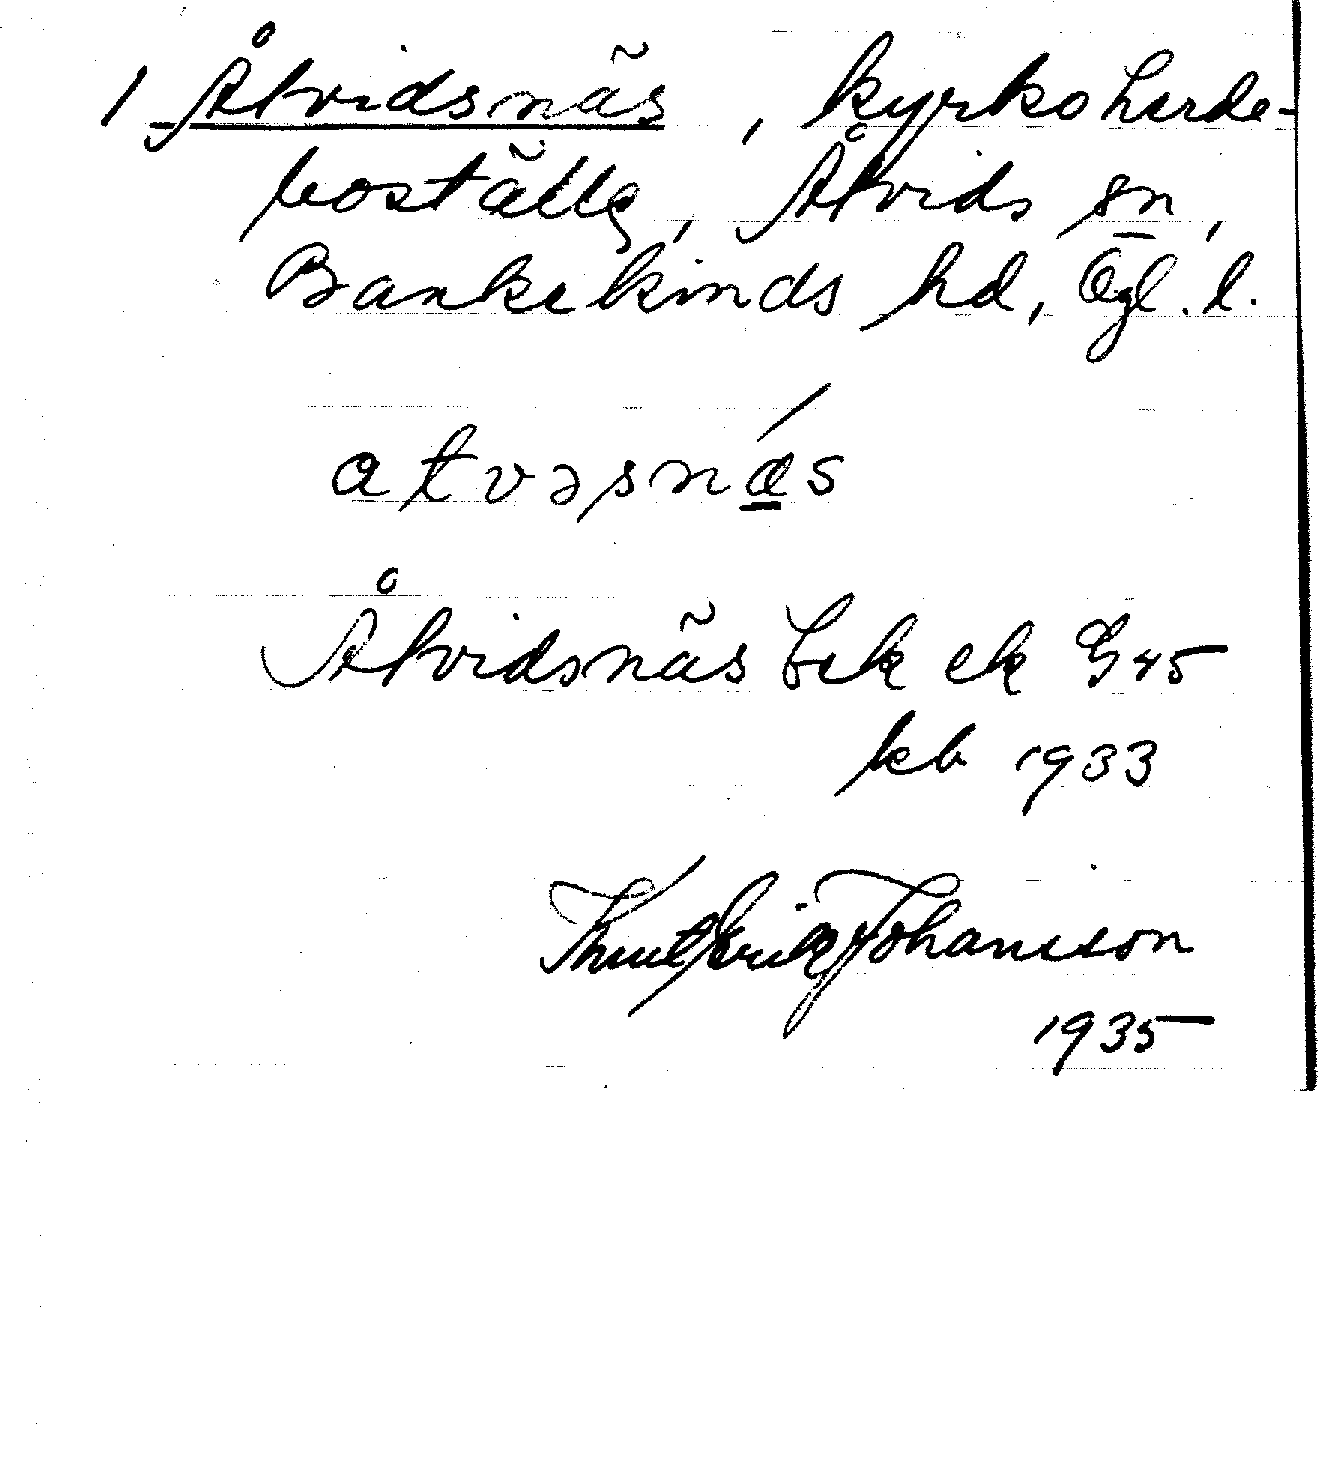 1 Åtvidsnäs, kyrkoherde-
boställe, Åtvids sn,
Bankekinds hd, Ögl. l.
atvəsnǽs
Åtvidsnäs bek ek G 45
kb 1933
Knut Erik Johansson
1935